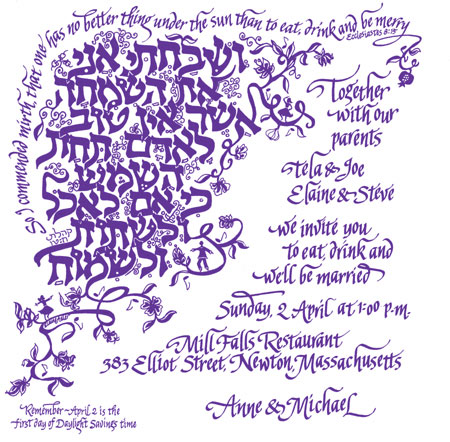 So I commended mirth, that one has no better thing under the sun than to eat, drink and be merry
Ecclesiastes 8:15
ושבחתי אני
את השמחה
אשר אין טוב
לאדם תחת
השמש
כי אם לאכל
ולשתות
ולשמוח
קהלת
Together
with our
parents
Stela & Joe
Elaine & Steve
we invite you
to eat, drink and
we'll be married
Sunday, 2 April at 1:00 p.m.
Mill Falls Restaurant
383 Elliot Street, Newton, Massachusetts
Anne & Michael
Remember - April 2 is the
first day of Daylight Savings time